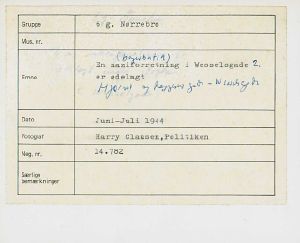 Gruppe 6 g. Nørrebro
Mus. nr.
(bagerbutik)
Emne En naziforretning i Wesselsgade 2.
er ødelagt
Hjørnet
Dato Juni-Juli 1944
Fotograf Harry Clausen, Politiken
Neg. nr. 14.782
Særlige
bemærkninger